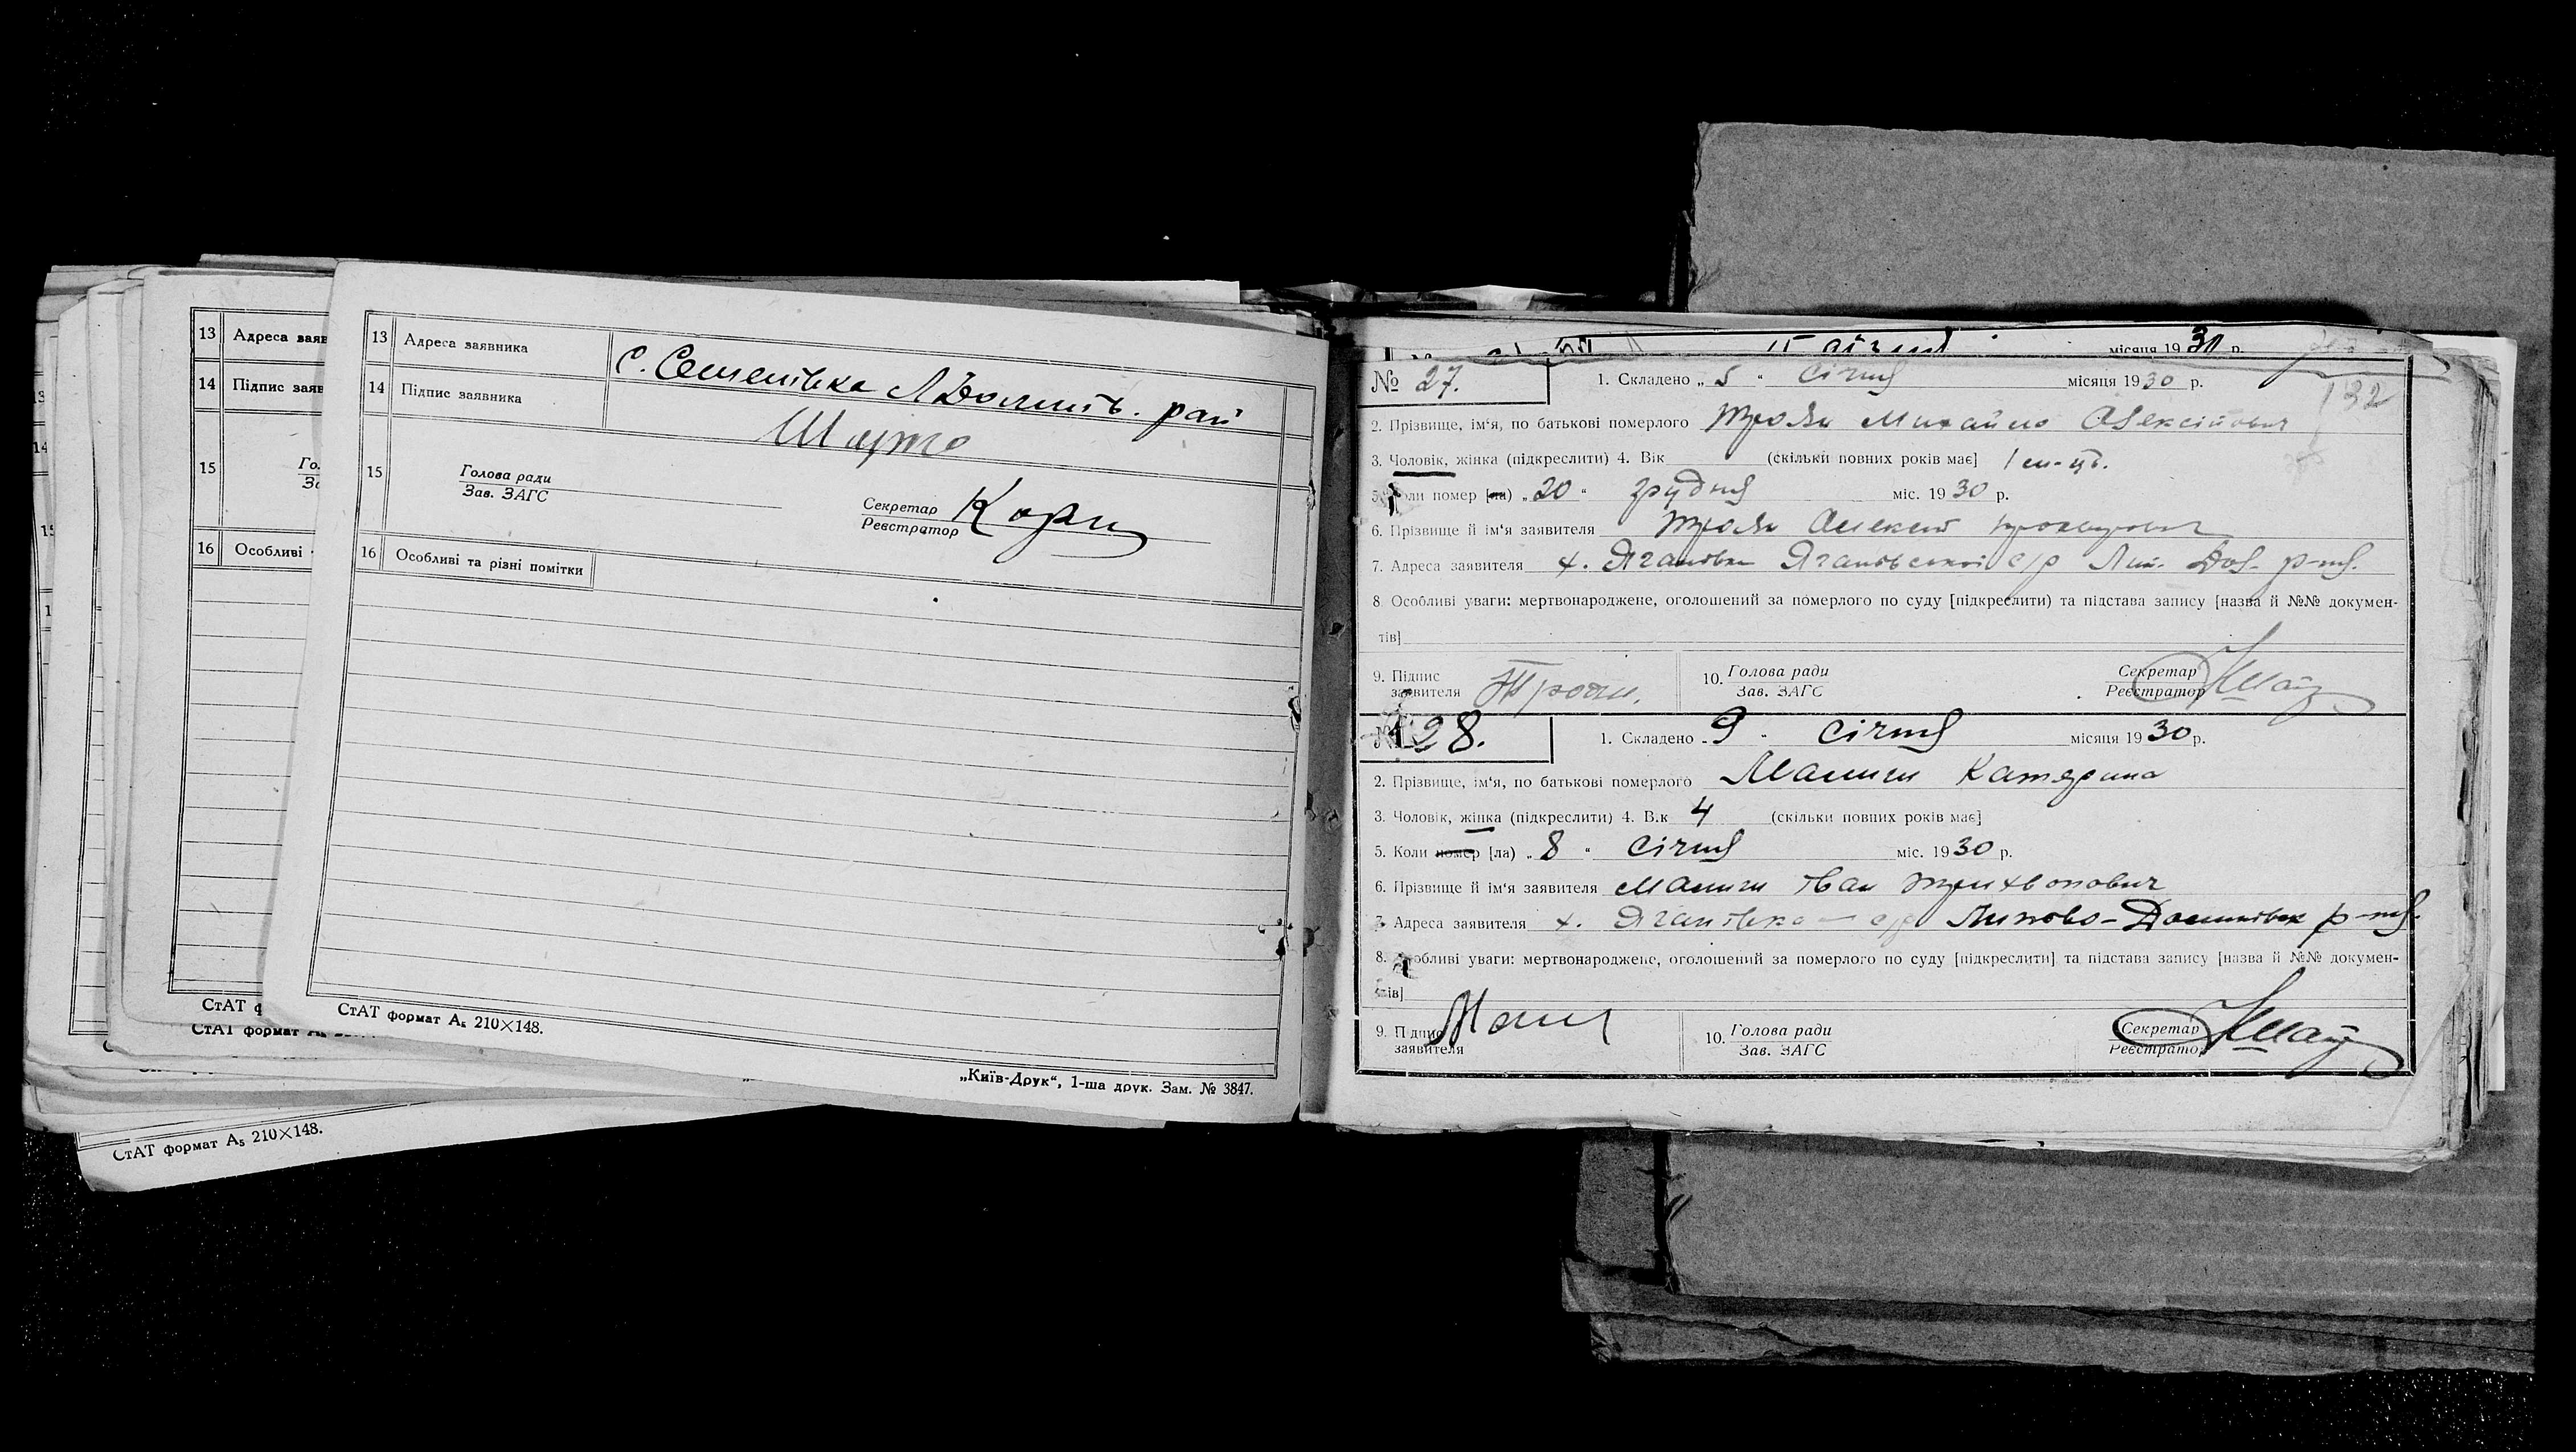 13 Адреса заяв
14 Підпис заяв
15
16 Особливі
СтАТ
СтАТ формат
СтАТ формат А₅ 210×148.
13 Адреса заявника С. Семенівка рай
14 Підпис заявника
15 Голова ради
Зав. ЗАГС
Секретар
Реєстратор
16 Особливі та різні помітки
СтАТ формат А₅ 210×148.
„Київ-Друк“, 1-ша друк. Зам. № 3847.
місяця 1930 р.
№ 27. 1. Складено „5“ Січня місяця 1930 р.
132
2. Прізвище, ім'я, по батькові померлого Михайло Олексійович
3. Чоловік, жінка (підкреслити) 4. Вік (скільки повних років має] 1 м-ць.
5. Коли помер [ла) „20“ грудня міс. 1930 р.
6. Прізвище й ім'я заявителя Олексій
7. Адреса заявителя х. Яганівка Яганівської с/р Лип. Дол. р-ня.
8. Особливі уваги: мертвонароджене, оголошений за померлого по суду [підкреслити) та підстава запису [назва й №№ докумен-
тів]
9. Підпис
заявителя
10. Голова ради
Зав. ЗАГС
Секретар
Реєстратор
№ 28. 1. Складено „9“ Січня місяця 1930 р.
2. Прізвище, ім'я, по батькові померлого Катерина
3. Чоловік, жінка (підкреслити) 4. В.к 4 (скільки повних років має]
5. Коли помер [ла) „8“ Січня міс. 1930 р.
6. Прізвище й ім'я заявителя Іван Трихвонович
7. Адреса заявителя х. Яганівка — с/р Липово-Долинськ р-ня.
8. Особливі уваги: мертвонароджене, оголошений за померлого по суду [підкреслити] та підстава запису [назва й №№ докумен-
тів]
9. Підпис
заявителя
10. Голова ради
Зав. ЗАГС
Секретар
Реєстратор